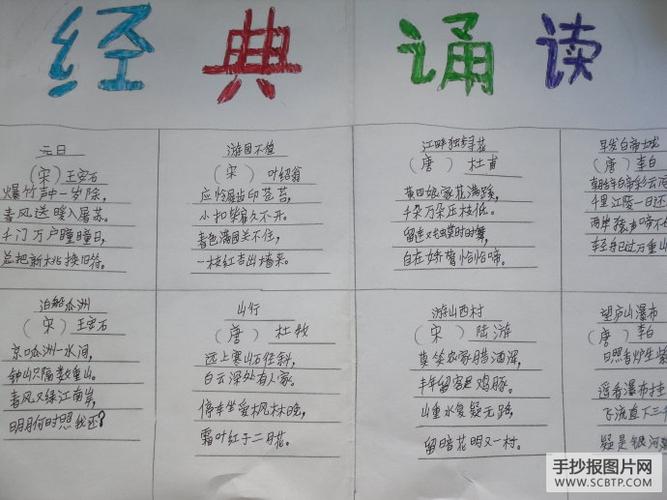 经典诵读
元日
（宋）王安石
爆竹声中一岁除，
春风送暖入屠苏。
千门万户曈曈日，
总把新桃换旧符。
游园不值
（宋）叶绍翁
应怜屐齿印苍苔，
小扣柴扉久不开。
春色满园关不住，
一枝红杏出墙来。
江畔独步寻花
（唐）杜甫
黄四娘家花满蹊，
千朵万朵压枝低。
留连戏蝶时时舞，
自在娇莺恰恰啼。
早发白帝城
（唐）李白
朝辞白帝彩云间
千里江陵一日还
两岸猿声啼不
轻舟已过万重山
泊船瓜洲
（宋）王安石
京口瓜洲一水间，
钟山只隔数重山。
春风又绿江南岸，
明月何时照我还？
山行
（唐）杜牧
远上寒山石径斜，
白云深处有人家。
停车坐爱枫林晚，
霜叶红于二月花。
游山西村
（宋）陆游
莫笑农家腊酒浑，
丰年留客足鸡豚。
山重水复疑无路，
柳暗花明又一村。
望庐山瀑布
（唐）李白
日照香炉生紫
遥看瀑布挂
飞流直下三千
疑是银河
手抄报图片网
WWW.SCBTP.COM